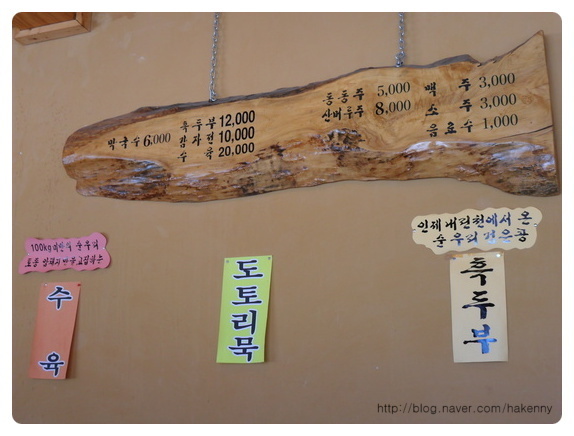 막국수 6,000
흑두부 12,000
감자전 10,000
수육 20,000
동동주 5,000
산머루주 8,000
맥주 3,000
소주 3,000
음료수 1,000
100kg미만의 순우리
토종 암퇘지만을 고집하는
수육
도토리묵
인제 내린천에서 온
순 우리 검은콩
흑두부
http://blog.naver.com/hakenny